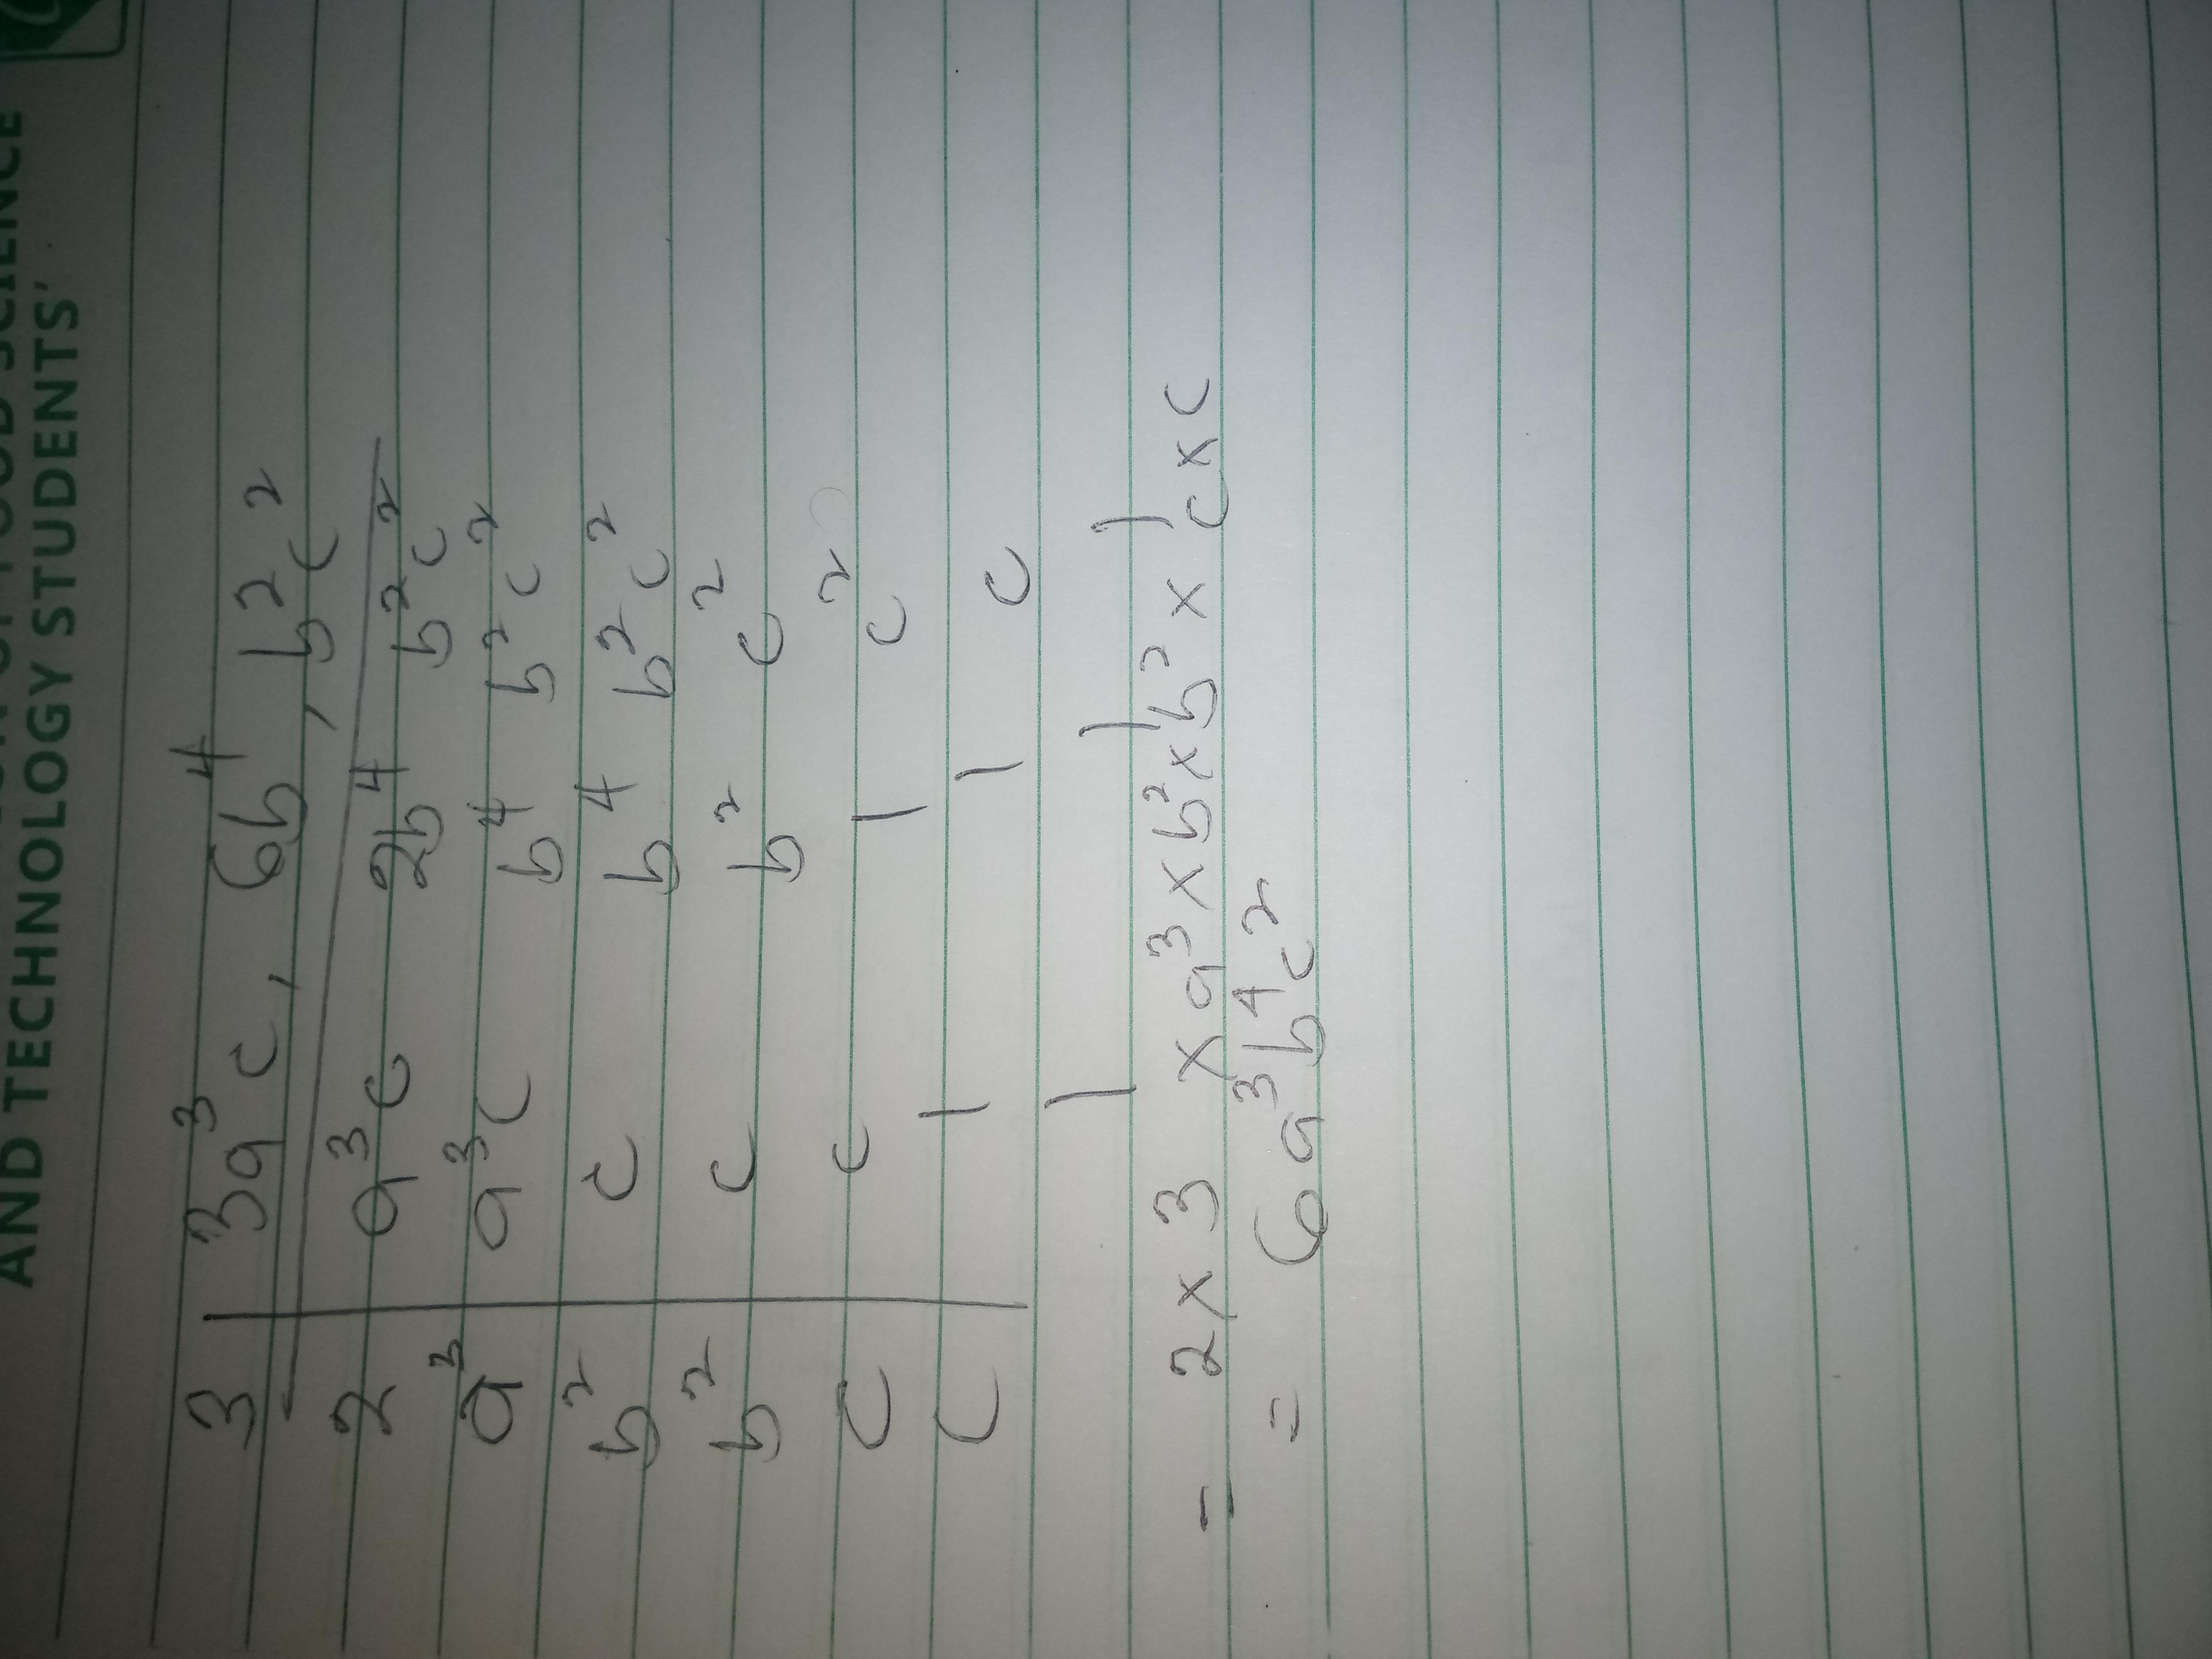 AND TECHNOLOGY STUDENTS'
3 | 3a³c, 6b⁴, b²c²
2 | a³c 2b⁴ b²c²
a³ | a³c b⁴ b²c²
b² | c b⁴ b²c²
b² | c b² c²
c | c 1 c²
c | 1 1 c
1 1 1
= 2 x 3 x a³ x b² x b² x c x c
= 6a³b⁴c²